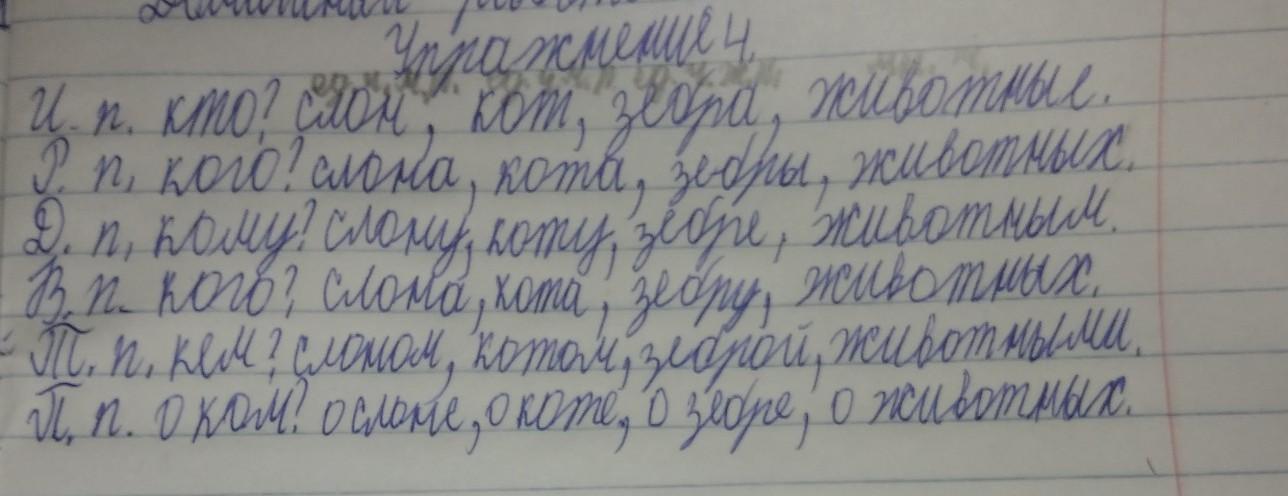 Домашняя работа
Упражнение 4.
ед.ч.м.р. ед.ч.м.р. ед.ч.ж.р. мн. ч.
И. п. кто? слон, кот, зебра, животные.
Р. п. кого? слона, кота, зебры, животных.
Д. п. кому? слону, коту, зебре, животным.
В. п. кого? слона, кота, зебру, животных.
Т. п. кем? слоном, котом, зеброй, животными.
П. п. о ком? о слоне, о коте, о зебре, о животных.